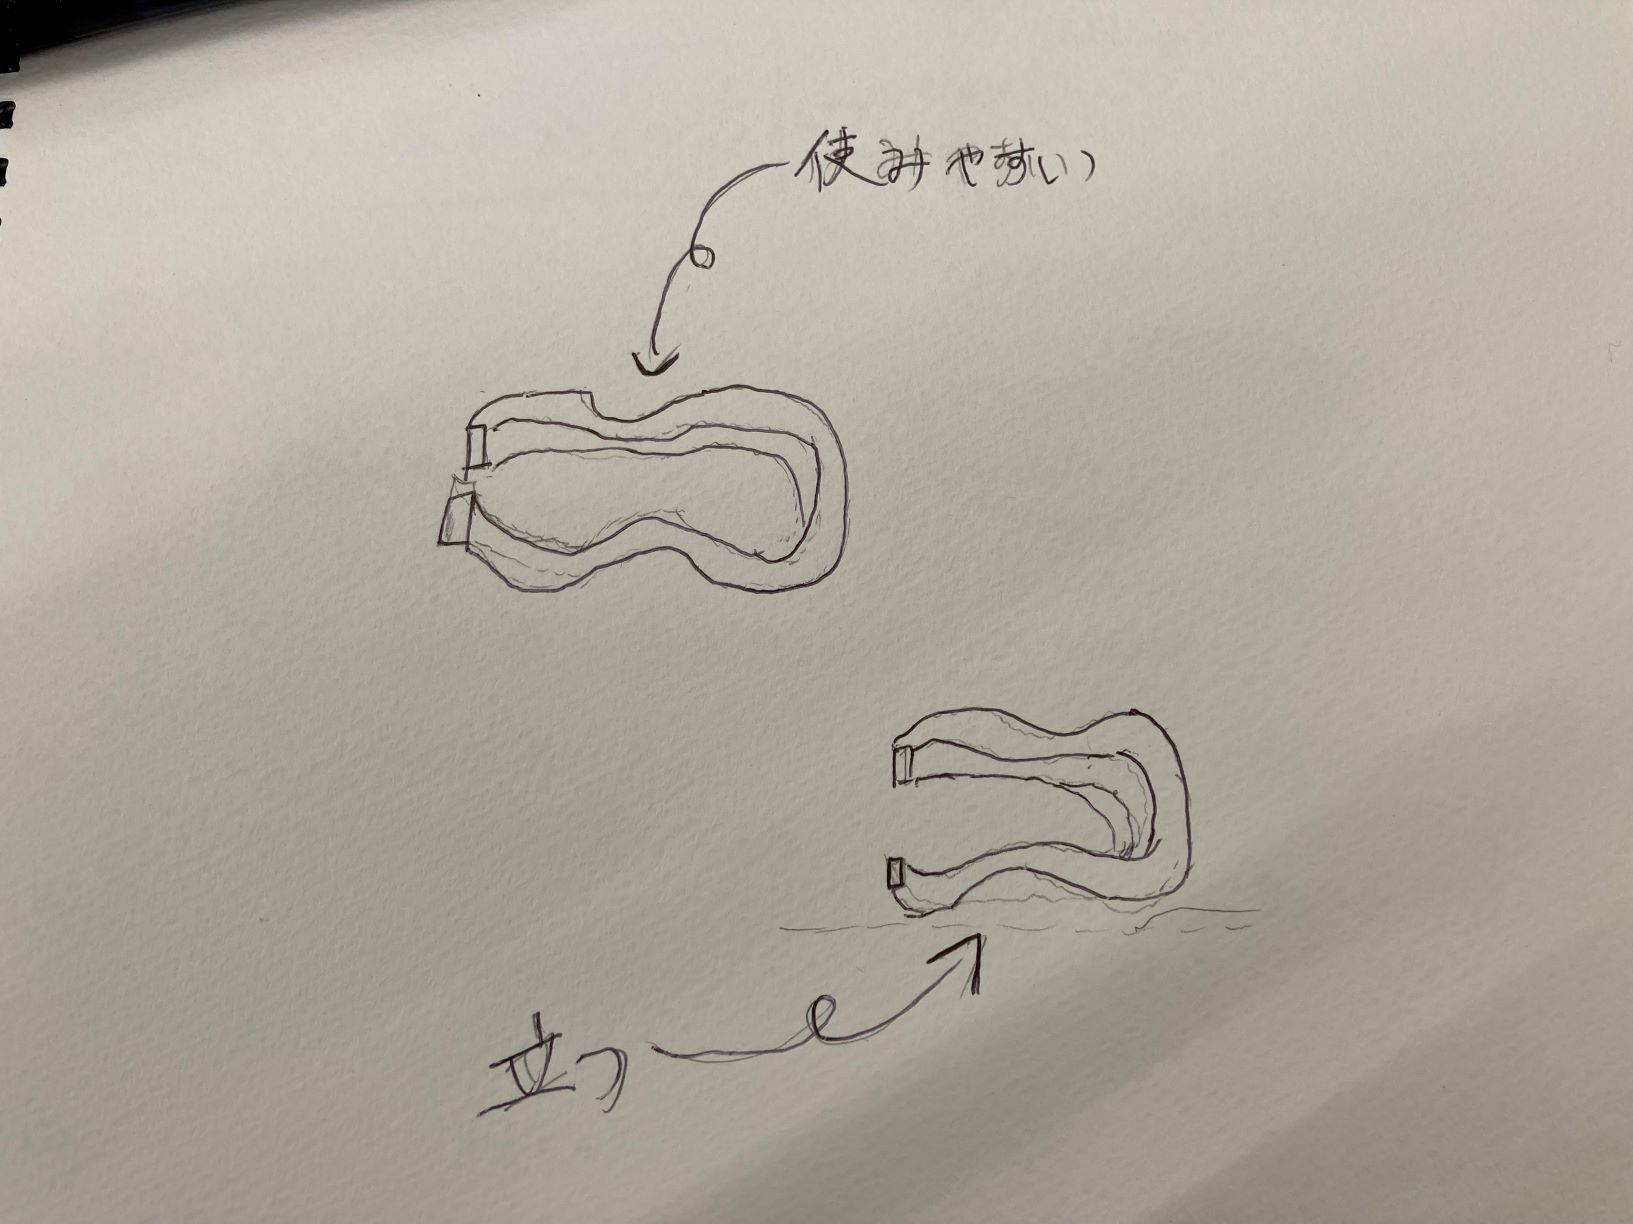 使いやすい
立つ